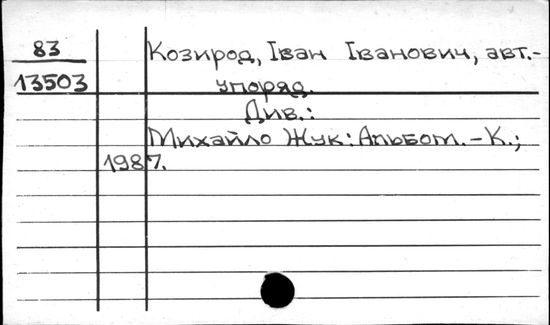 83
13503
Козирод, Іван Іванович, авт.-
упоряд.
Див.:
Михайло Жук: Альбом.-К.;
1987.